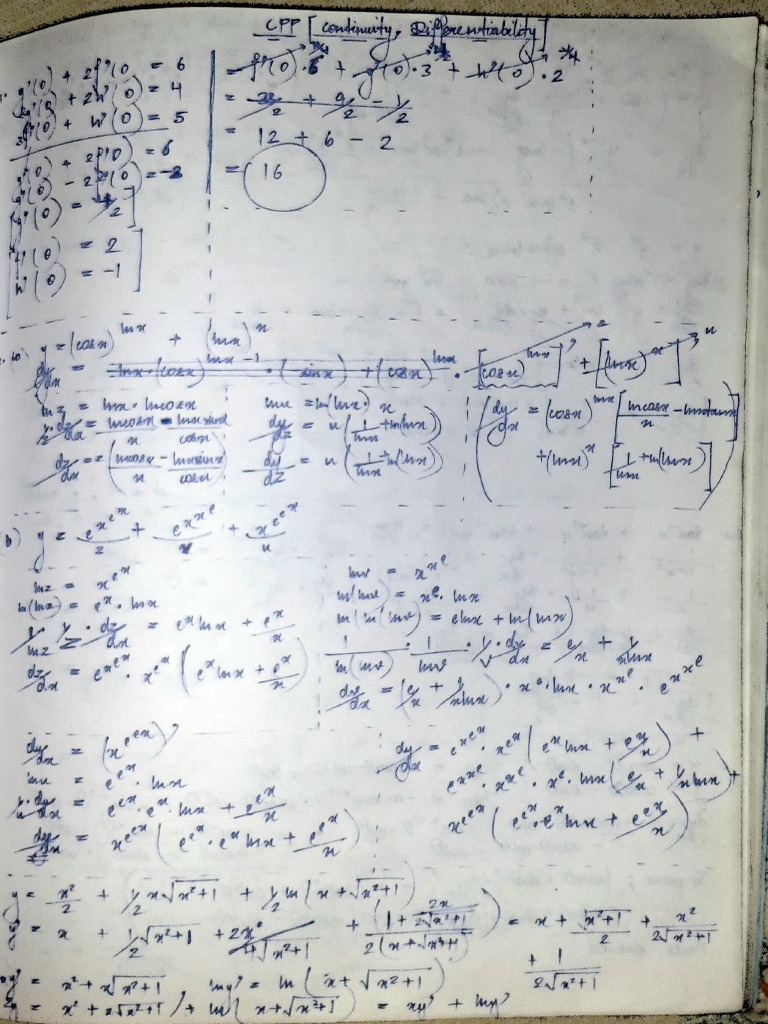 CPP [Continuity, Differentiability]
g'(0) + 2f'(0) = 6
g'(0) + 2h'(0) = 4
3f'(0) + h'(0) = 5
g'(0) + 2f'(0) = 6
f'(0) = 2
h'(0) = -1
= f'(0)·6 + g'(0)·3 + h'(0)·2
= 12 + 6 - 2
= 16
y = (cosx)^{lnx} + (lnx)^x
lnz = lnx·lncosx
1/z·dz/dx = lncosx/x - lnx sinx/cosx
dz/dx = z(lncosx/x - lnx sinx/cosx)
lnu = ln(lnx)·x
dy/dx = (cosx)^{lnx} [lncosx/x - lnx tanx]
+ (lnx)^x [1/lnx + ln(lnx)]
b) y = e^{x^{e^x}} + e^{x^{x^e}} + x^{e^{e^x}}
lnz = x^{e^x}
ln(lnz) = e^x·lnx
1/lnz·1/z·dz/dx = e^x lnx + e^x/x
dz/dx = e^{x^{e^x}}·x^{e^x}(e^x lnx + e^x/x)
lnv = x^{x^e}
ln(lnv) = x^e·lnx
ln(ln(lnv)) = elnx + ln(lnx)
1/ln(lnv)·1/lnv·1/v·dv/dx = e/x + 1/xlnx
dv/dx = (e/x + 1/xlnx)·x^e·lnx·x^{x^e}·e^{x^{x^e}}
dy/dx = (x^{e^{e^x}})'
lnu = e^{e^x}·lnx
1/u·du/dx = e^{e^x}·e^x·lnx + e^{e^x}/x
= x^{e^{e^x}}(e^{e^x}·e^x lnx + e^{e^x}/x)
dy/dx = e^{x^{e^x}}·x^{e^x}(e^x lnx + e^x/x) +
e^{x^{x^e}}·x^{x^e}·x^e·lnx(e/x + 1/xlnx) +
x^{e^{e^x}}(e^{e^x}·e^x lnx + e^{e^x}/x)
y = x²/2 + 1/2 x√(x²+1) + 1/2 ln(x + √(x²+1))
y' = x + 1/2 √(x²+1) + 2x²/4√(x²+1) + (1 + 2x/2√(x²+1))/2(x + √(x²+1)) = x + √(x²+1)/2 + x²/2√(x²+1)
+ 1/2√(x²+1)
xy' = x² + x√(x²+1), lny' = ln(x + √(x²+1))
2y = x² + x√(x²+1) + ln(x + √(x²+1)) = xy' + lny'